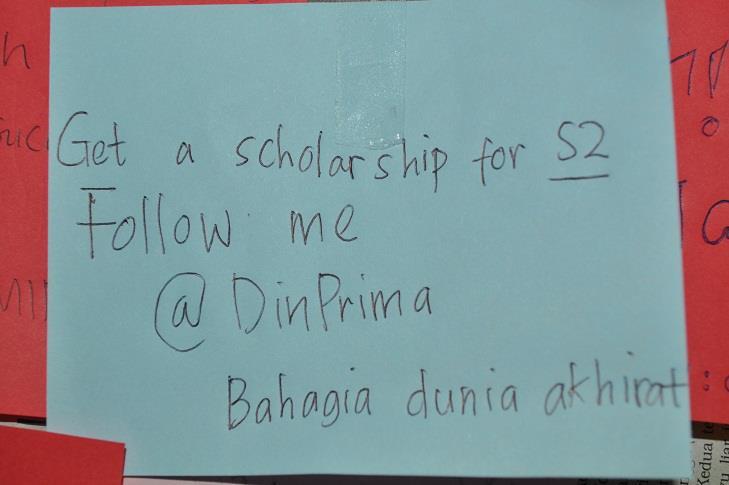 Get a scholarship for S2
Follow me
@DinPrima
Bahagia dunia akhirat
Kedua